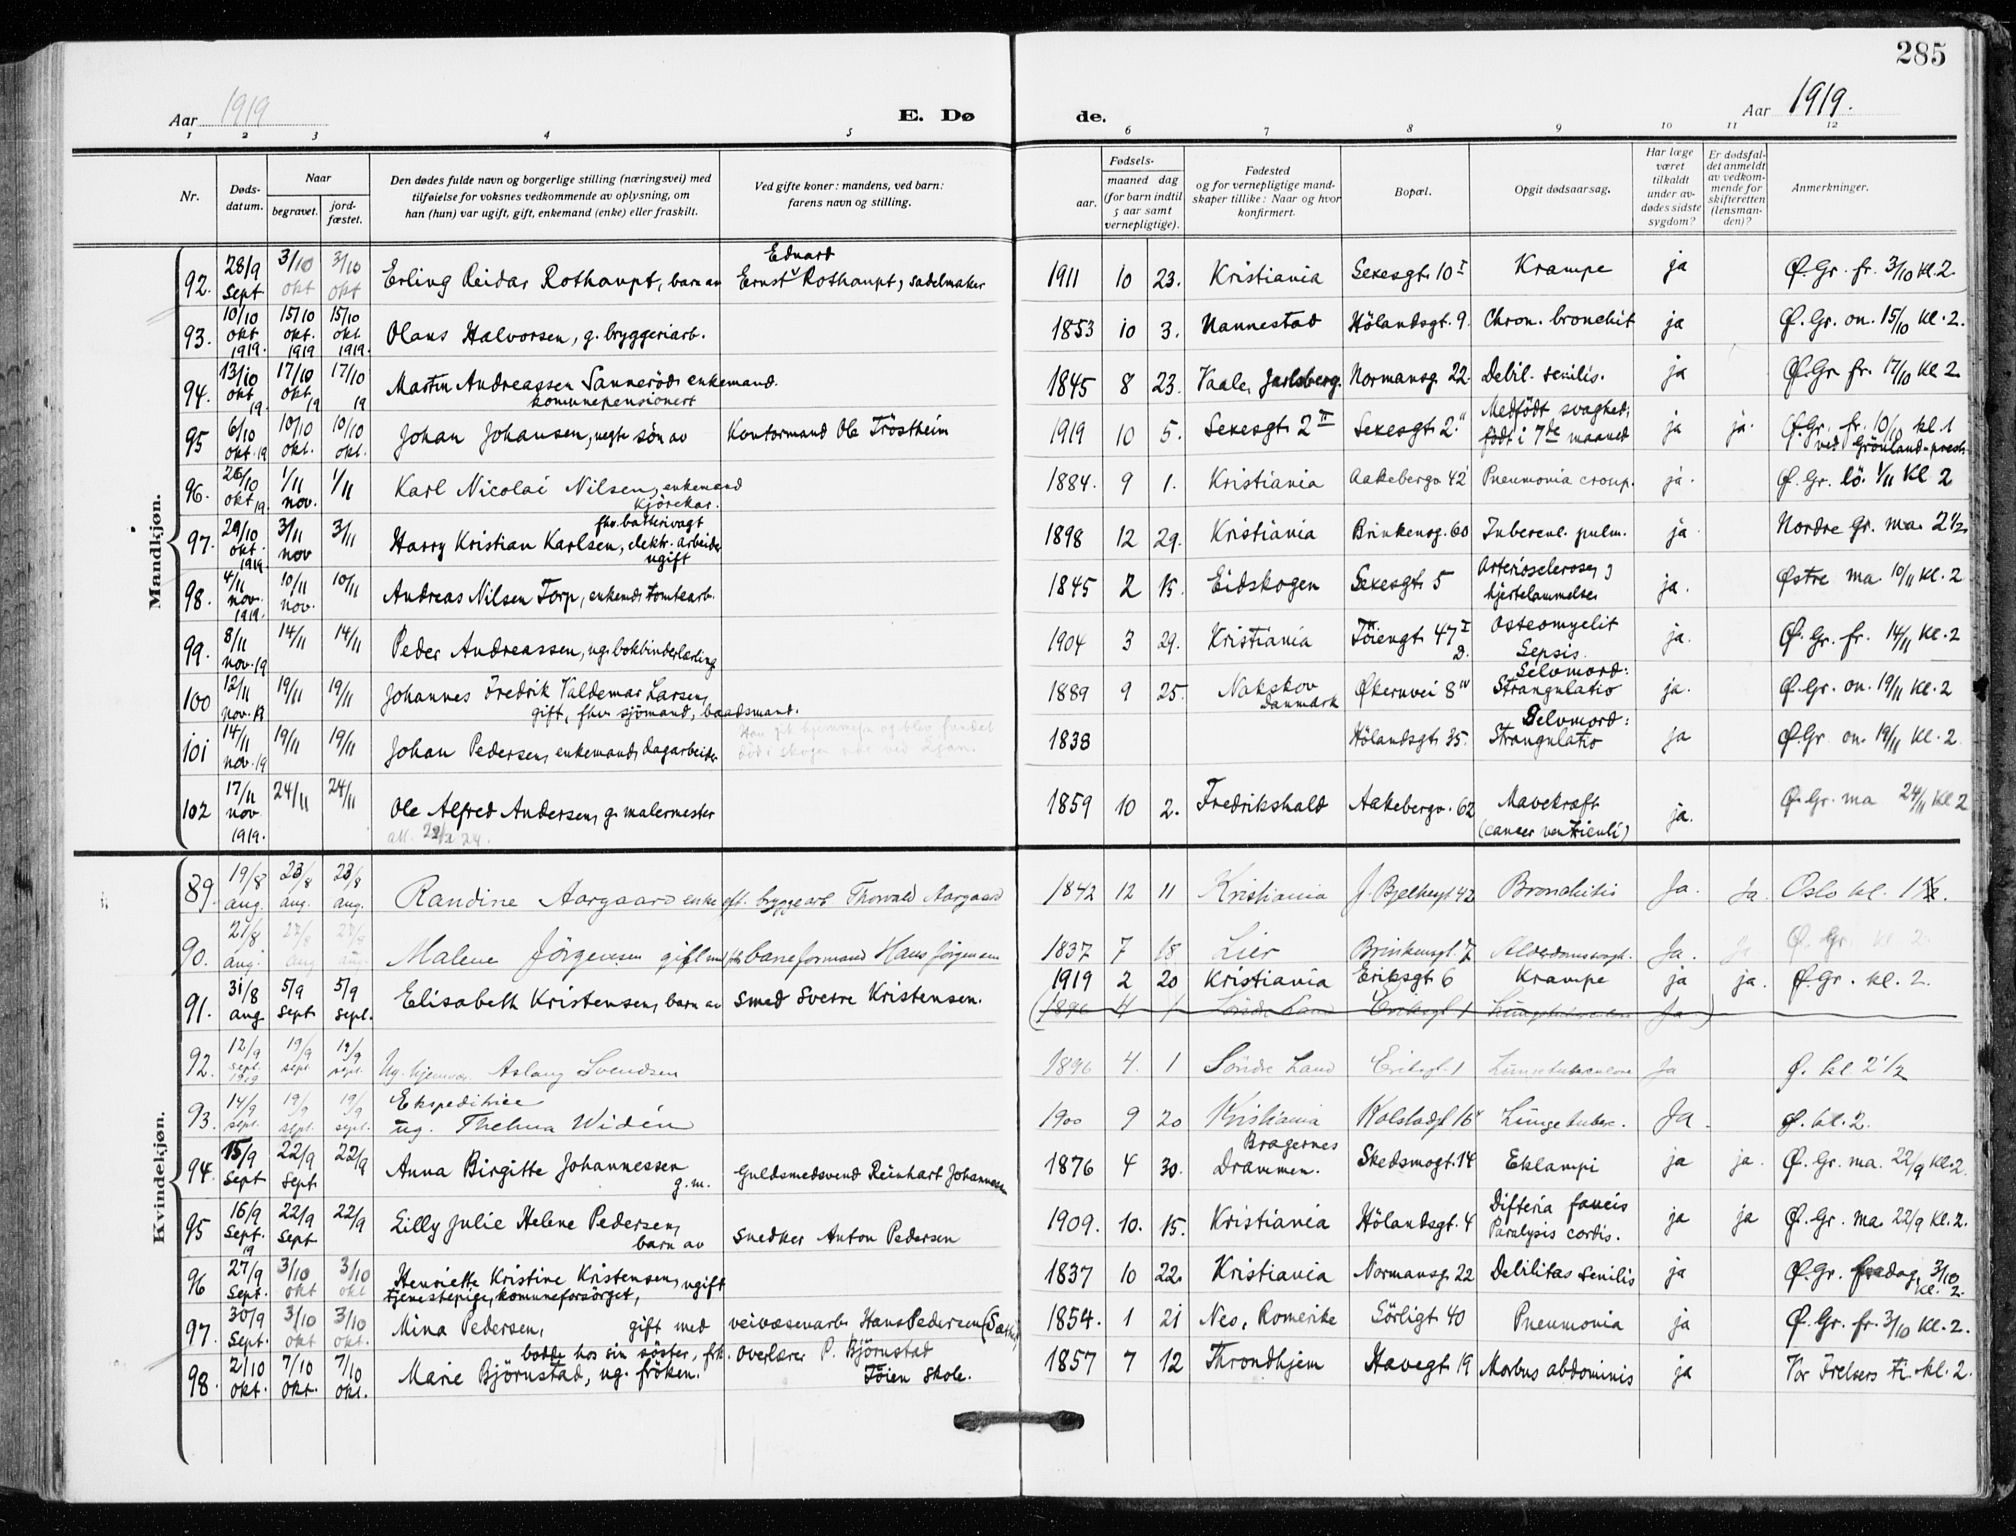 285
Aar 1919
E. Dø
de.
Aar 1919.
1 2 3 4 5 6 7 8 9 10 11 12
Nr.
Døds-
datum.
Naar
begravet.
jord-
fæstet.
Den dødes fulde navn og borgerlige stilling (næringsvei) med
tilføielse for voksnes vedkommende av oplysning, om
han (hun) var ugift, gift, enkemand (enke) eller fraskilt.
Ved gifte koner: mandens, ved barn:
farens navn og stilling.
Fødsels-
aar.
maaned dag
(for barn indtil
5 aar samt
vernepligtige).
Fødested
og for vernepligtige mand-
skaper tillike: Naar og hvor
konfirmert.
Bopæl.
Opgit dødsaarsag.
Har læge
været
tilkaldt
under av-
dødes sidste
sygdom?
Er dødsfal-
det anmeldt
av vedkom-
mende for
skifteretten
(lensman-
den)?
Anmerkninger.
Mandkjøn.
92. 28/9 Sept 3/10 okt 3/10 okt Erling Reidar Rothaupt, barn av Ernst Eduard Rothaupt, sadelmaker 1911 10 23. Kristiania Sexesgt 10 I Krampe ja Ø. Gr. fr. 3/10 kl. 2.
93. 10/10 okt 1919. 15/10 okt. 1919 15/10 okt 1919. Olaus Halvorsen, g. bryggeriarb. 1853 10 3. Nannestad Hölandsgt. 9. Chron. bronchit ja Ø. Gr. on. 15/10 kl. 2.
94. 13/10 okt 19. 17/10 okt. 19 17/10 19 Martin Andreassen Sanneröd, enkemand.
kommunepensionert 1845 8 23. Vaale, Jarlsberg. Normansg. 22. Debil. senilis. ja Ø. Gr. fr. 17/10 kl 2
95 6/10 okt. 19 10/10 okt. 10/10 okt. Johan Johansen, uegte søn av Kontormand Ole Tröstheim 1919 10 5. Sexesgt. 2 II Sexesgt 2 II Medfödt svaghed;
födt i 7de maaned ja ja. Ø. Gr. fr. 10/10 kl. 1
ved Grönland-prest.
96. 26/10 okt 19. 1/11 nov. 1/11 Karl Nicolai Nilsen, enkemand
kjörekar. 1884. 9 1. Kristiania Aakebergv 42 Pneumonia croup. ja. Ø. Gr. lö. 1/11 Kl 2
97. 29/10 okt. 1919. 3/11 nov 3/11 fhv. batterivagt
Harry Kristian Karlsen, elektr. arbeider
ugift 1898 12 29. Kristiania Brinkensg. 60 Tubercul. pulm. ja Nordre Gr. ma. 2 1/2
98. 4/11 nov. 1919. 10/11 nov. 10/11 Andreas Nilsen Torp, enkemd. tomtearb. 1845 2 15. Eidskogen Sexesgt 5 Arteriosclerose;
hjertelammelse ja. Østre ma 10/11 kl. 2
99. 8/11 nov. 19 14/11 14/11 Peder Andreassen, ug. bokbinderlærling 1904 3 29. Kristiania Töiengt. 47 I Osteomyelit
Sepsis. ja. Ø. Gr. fr. 14/11 kl. 2
100 12/11 nov. 19 19/11 19/11 Johannes Fredrik Valdemar Larsen,
gift, fhv. sjömand, baadsmand. 1889 9 25. Nakskov
Danmark Økernvei 8 IV Selvmord:
Strangulatio ja. Ø. Gr. on. 19/11 Kl. 2
101 14/11 nov. 19 19/11 19/11 Johan Pedersen, enkemand, dagarbeider Han gik hjemmefra og blev fundet
död i skogen ved Ljan. 1838 Hölandsgt. 35. Selvmord:
Strangulatio ja Ø. Gr. on. 19/11 Kl. 2.
102 17/11 nov 1919. 24/11 24/11 Ole Alfred Andersen, g. malermester 1859 10 2. Fredrikshald Aakebergv. 62 Mavekræft
(cancer ventriculi) ja. Ø. Gr. ma 24/11 kl 2
Kvindekjøn.
89. 19/8 aug. 23/8 aug. 23/8 aug. Randine Aargaard enke eft. bryggearb Thorvald Aargaard 1842 12 11 Kristiania J. Bjelkesgt 42 Bronchitis Ja. Ja. Oslo kl. 1
90. 21/8 aug. 27/8 aug 27/8 aug. Malene Jörgensen gift med baneformand Hans Jörgensen 1837 7 18. Lier Brinkensgt. 7. Alderdomssvagh. Ja. Ja Ø. Gr. kl. 2.
91. 31/8 aug 5/9 sept. 5/9 sept. Elisabeth Kristensen, barn av smed Sverre Kristensen. 1919 2 20 Kristiania Eriksgt 6 Krampe ja ja. Ø. Gr. kl. 2.
(1896 4 1 Söndre Land Eriksgt 1 Lungetuberculose Ja)
92. 12/9 sept. 1919 19/9 sept 19/9 sept. Ug. hjemmev. Aslaug Svendsen 1896 4. 1 Söndre Land Eriksgt. 1 Lungetuberculose Ja Ø. kl. 2 1/2
93. 14/9 sept. 19/9 sept. 19/9 sept. Ekspeditrice
ug. Thelma Widén 1900 9 20 Kristiania Kolstadgt 16 Lungetuberc. Ja. Ø. kl. 2.
94. 15/9 Sept 22/9 Sept. 22/9 Anna Birgitte Johannessen
g. m. Guldsmedsvend Reinhart Johannessen 1876 4 30. Bragernes
Drammen. Skedsmogt. 14 Eklampi ja ja. Ø. Gr. ma. 22/9 kl. 2.
95 16/9 Sept. 19 22/9 Sept 22/9 Lilly Julie Helene Pedersen,
barn av snedker Anton Pedersen 1909. 10. 15. Kristiania Hölandsgt. 4 Difteria faucis
Paralysis cordis. ja ja Ø. Gr. ma. 22/9 kl. 2.
96 27/9 Sept. 3/10 okt 3/10 okt Henriette Kristine Kristensen, ugift
tjenestepige, kommuneforsörget, 1837 10 22. Kristiania Normansg. 22 Debilitas senilis ja Ø. Gr. fredag 3/10
kl. 2.
97. 30/9 Sept. 3/10 okt 3/10 okt. Mina Pedersen, gift med veivæsenarb. Hans Pedersen 1854. 1 21 Nes, Romerike Sörligt 40 Pneumonia ja Ø. Gr. fr. 3/10 Kl. 2.
98. 2/10 okt. 7/10 okt. 7/10 okt. bodde hos sin söster, frk. overlærer P. Björnstad
Marie Björnstad, ug. fröken. Töien Skole. 1857 7 12 Throndhjem Havegt 19 Morbus abdominis ja Vor Frelsers ti. kl. 2.